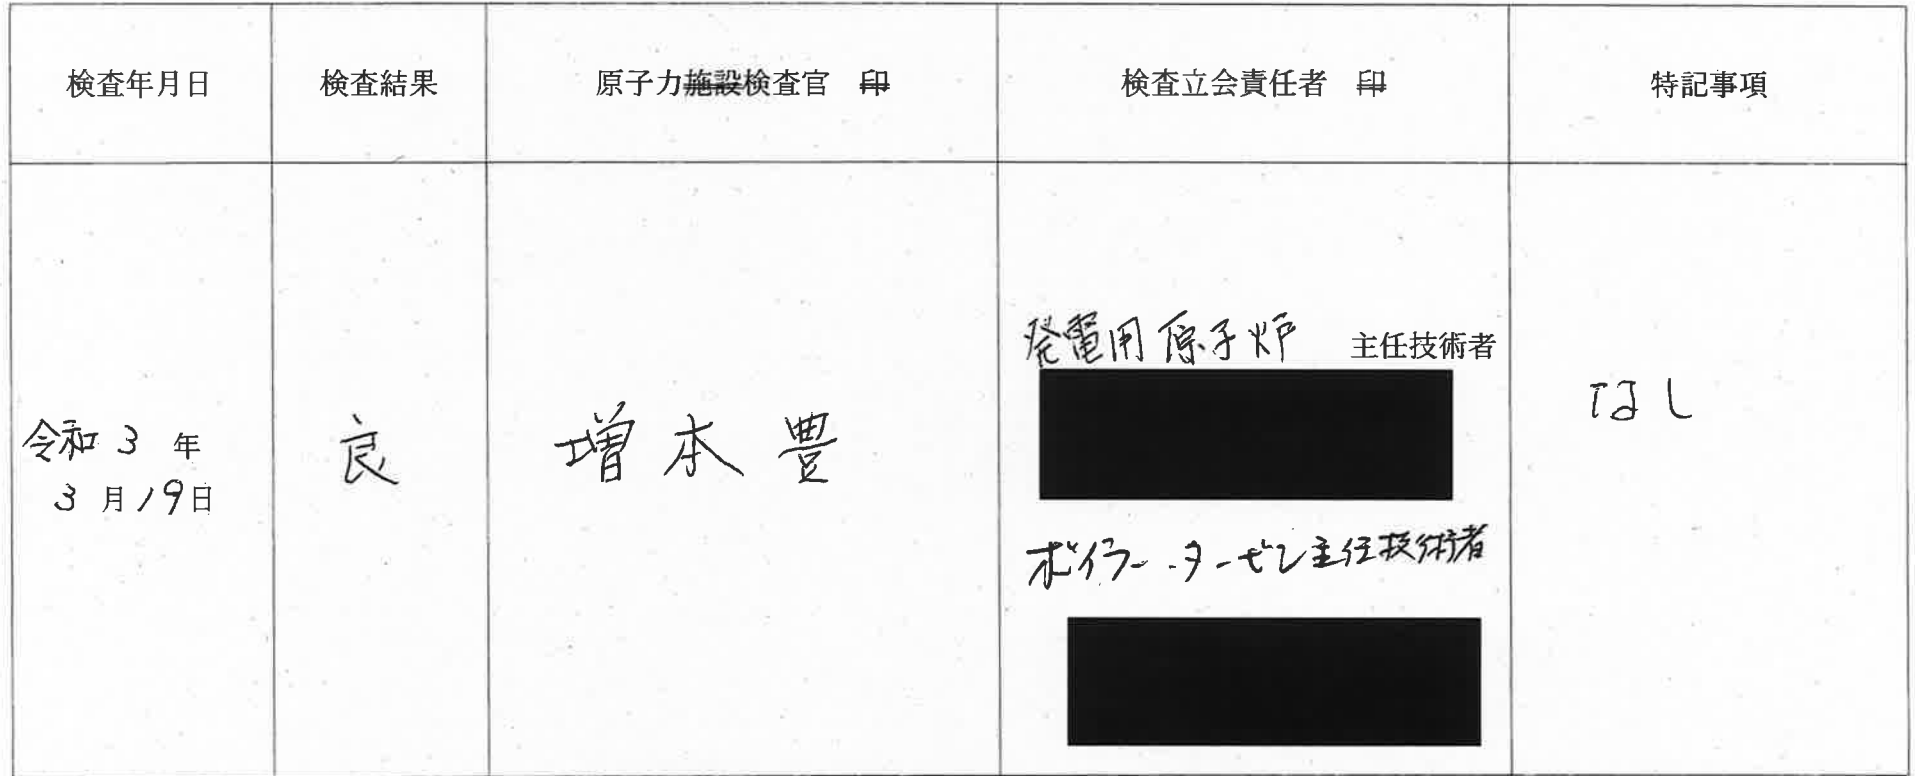 検査年月日
検査結果
原子力施設検査官 印
検査立会責任者 印
特記事項
令和 3 年
3 月 19 日
良
増本 豊
発電用原子炉 主任技術者
ボイラー・タービン主任技術者
なし